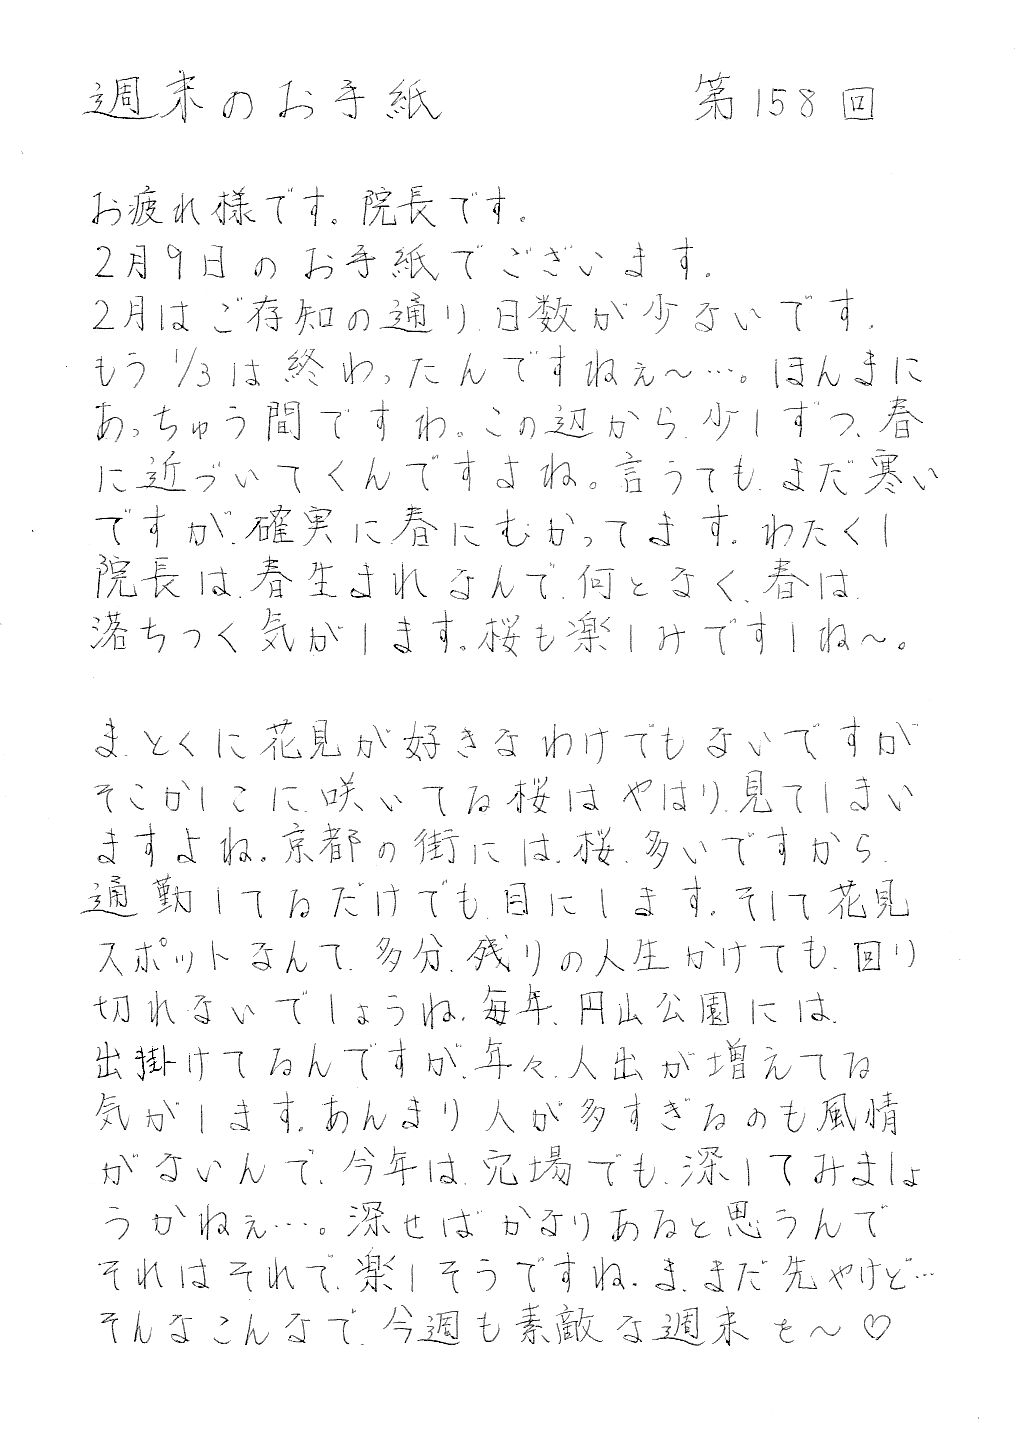 週末のお手紙 第158回
お疲れ様です。院長です。
2月9日のお手紙でございます。
2月はご存知の通り、日数が少ないです。
もう1/3は終わったんですねぇ〜…。ほんまに
あっちゅう間ですわ。この辺から、少しずつ、春
に近づいてくんですよね。言うても、まだ寒い
ですが、確実に、春にむかってます。わたくし
院長は、春生まれなんで、何となく、春は、
落ちつく気がします。桜も楽しみですしね〜。
ま、とくに花見が好きなわけでもないですが
そこかしこに、咲いてる桜はやはり、見てしまい
ますよね。京都の街には、桜、多いですから、
通勤してるだけでも、目にします。そして花見
スポットなんて、多分、残りの人生かけても、回り
切れないでしょうね。毎年、円山公園には、
出掛けてるんですが、年々、人出が増えてる
気がします。あんまり人が多すぎるのも風情
がないんで、今年は、穴場でも、深してみましょ
うかねぇ…。深せばかなりあると思うんで
それはそれで、楽しそうですね。ま、まだ先やけど…
そんなこんなで、今週も素敵な週末を〜♡